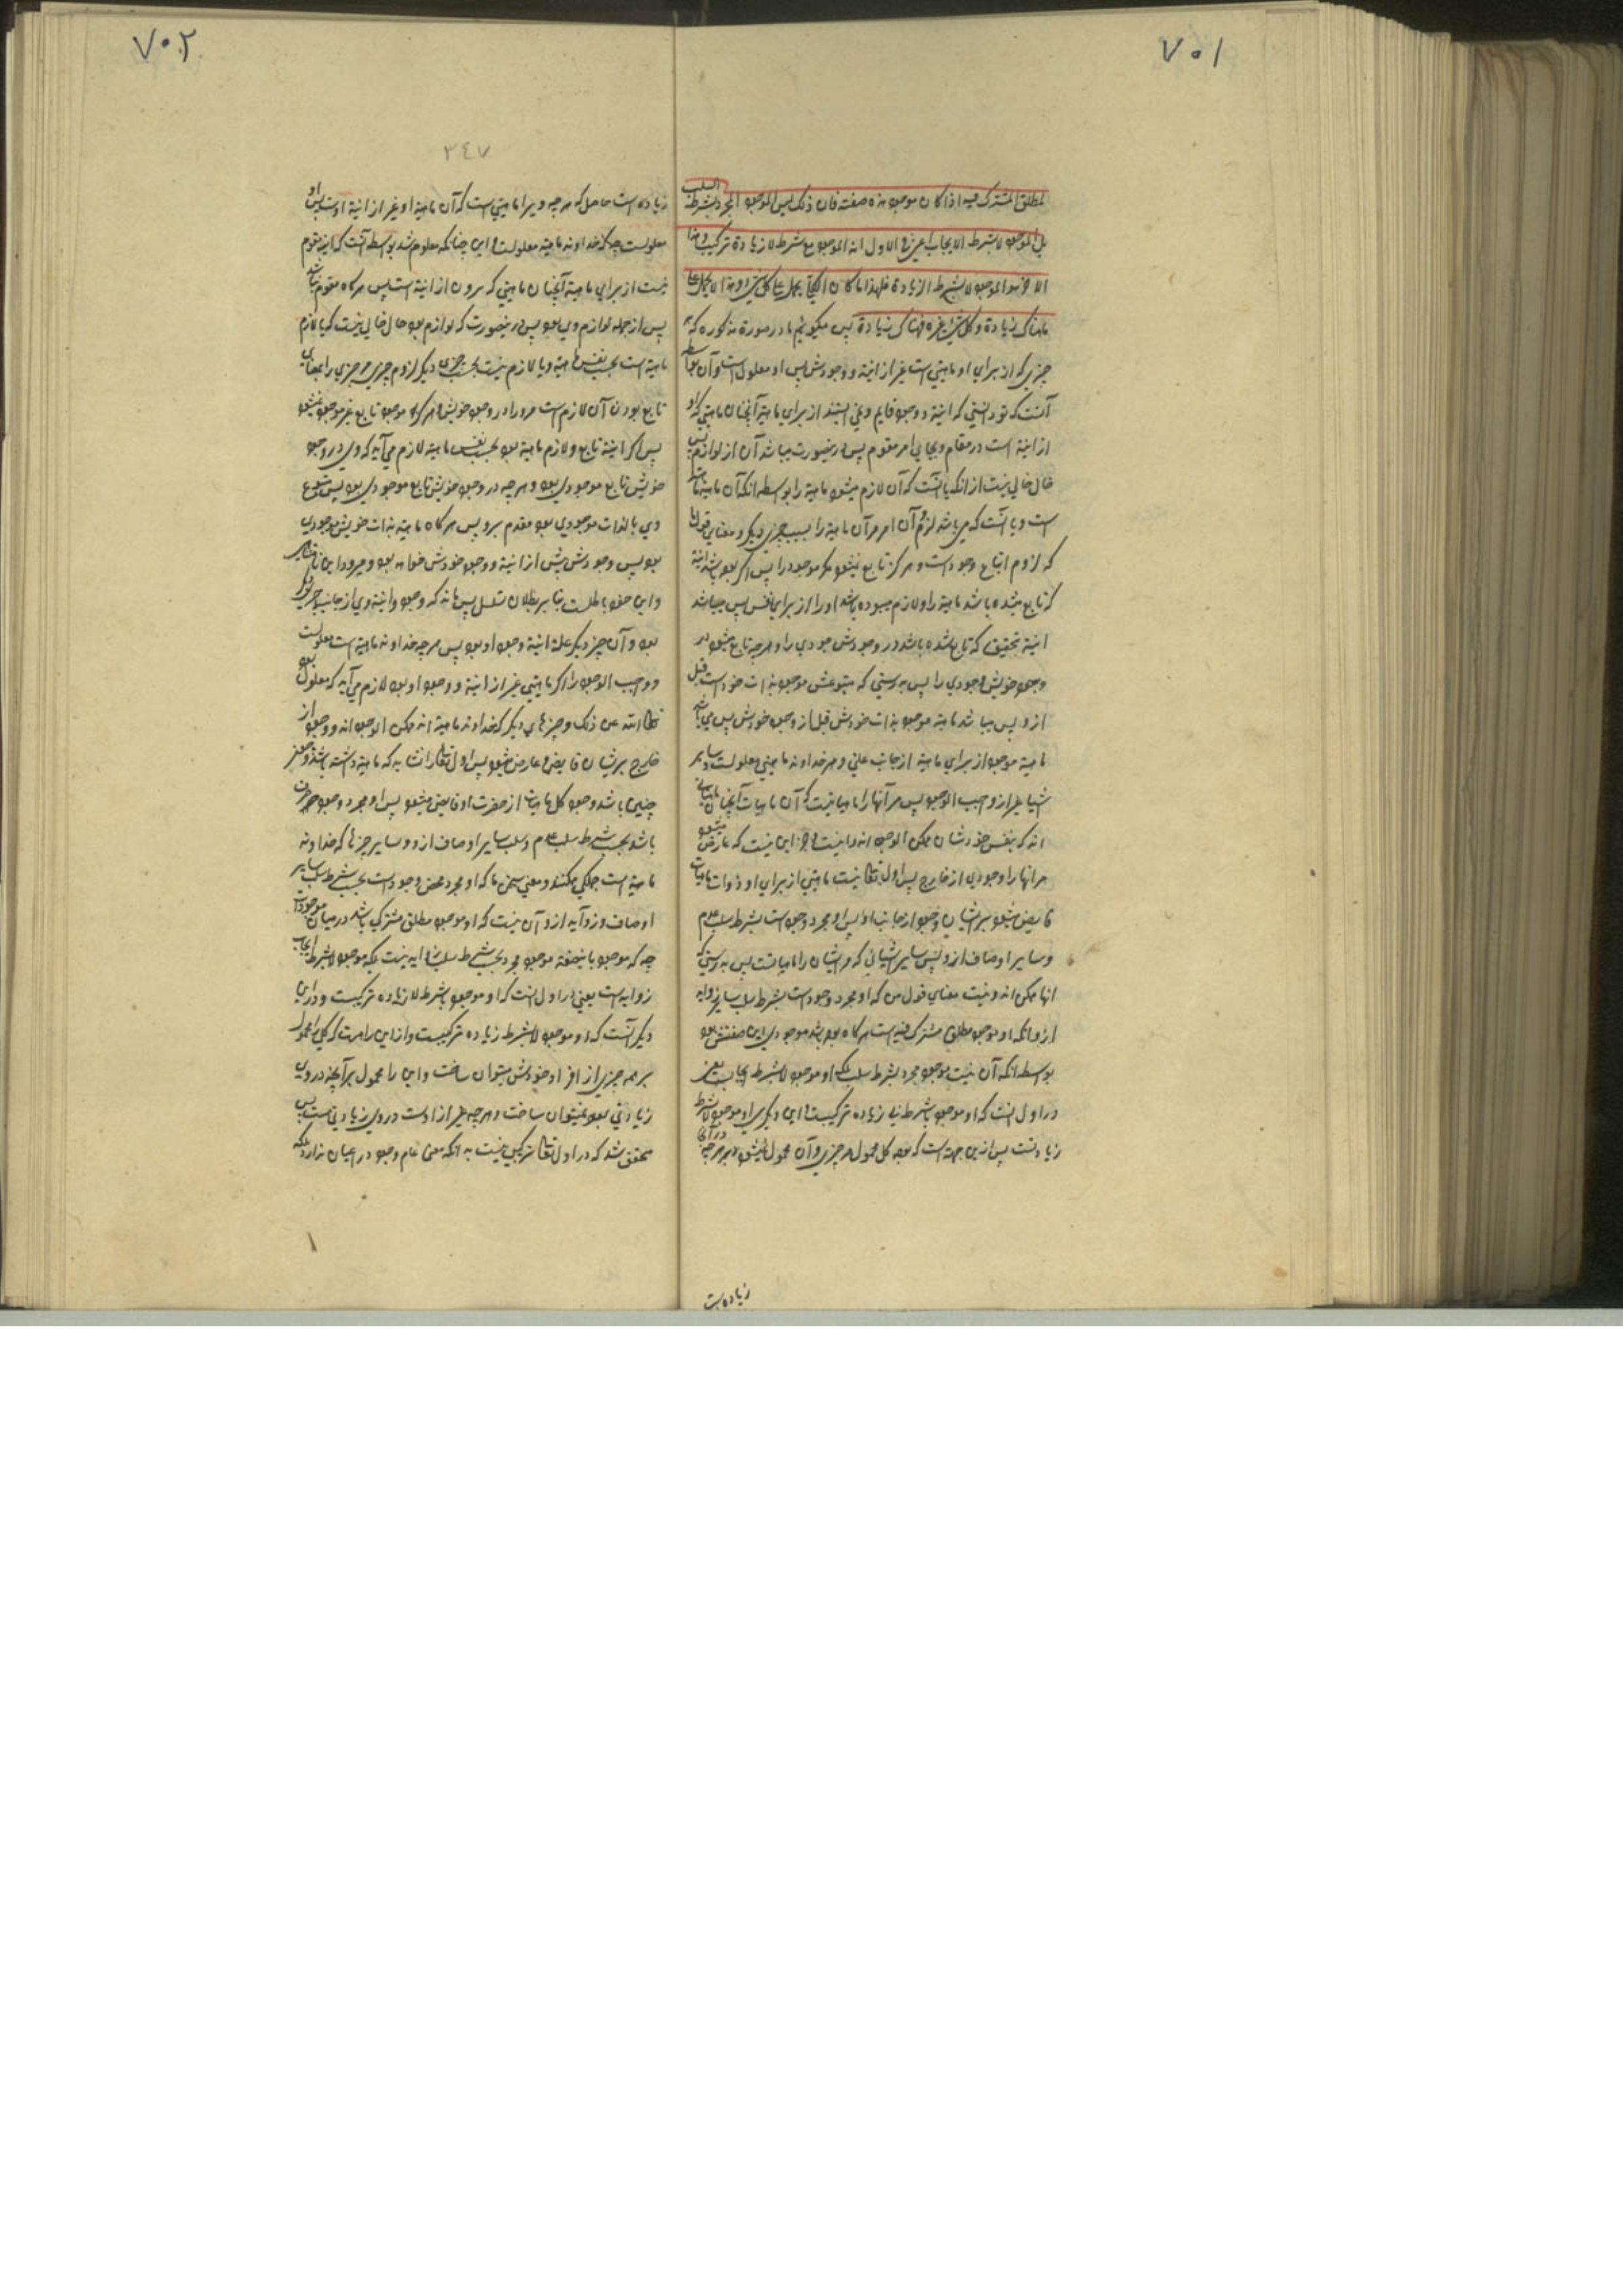 ٧٠١
المطلق المشترک فیه اذا کان موجود هذه صفته فان ذلک لیس الموجود المجرد بشرط السلب
بل الموجود لا بشرط الایجاب اعنی فی الاول انه الموجود مع شرط لا زیادة ترکیب و هذا
الاخر هو الموجود لا بشرط الزیادة فلهذا ما کان الکلی یحمل علی کل شیء و هذا لا یحمل علی
ما هناک زیادة و کل شیء غیره فهناک زیادة پس میکوئیم ما در صورة مذکوره که هر
چیزی که از برای او ماهیتی است غیر از انیة و وجودش پس او معلول است و آن بواسطه
آنست که تو دانستی که انیة و وجود قایم و نمی ایستند از برای ماهیة آنچنان ماهیتی که او
از انیة است در مقام و بجای امر مقوم پس درینصورت میباشد آن از لوازم پس
خال خالی نیست از انکه یا آنست که آن لازم میشود ماهیة را بواسطه انکه آن ماهیة
است و یا آنست که می باشد لزوم آن امر مر آن ماهیة را بسبب چیزی دیگر و معنای قول ما
که لزوم اتباع وجود است و هرکز تابع نمیشود مکر موجود را پس اکر بوده باشد انیة
که تابع شده باشد ماهیة را و لازم میبوده باشد او را از برای نفس پس میباشد
انیة بتحقیق که تابع شده باشد در وجودش موجودی را و هر چه تابع میشود در
وجود خویش وجودی را پس بدرستی که متبوعش موجود بذات خود است قبل
ازو پس میباشد ماهیة موجود بذات خودش قبل از وجود خودش پس می باشد
ماهیة موجود از برای ماهیة از جانب علتی و هر خداوند ماهیتی معلولست و سایر
اشیا غیر از واجب الوجود پس مر آنها را ماهیاتیست که آن ماهیات آنچنان ماهیاتی
اند که بنفس خودشان ممکن الوجود اند و انیست و جز این نیست که عارض میشود
مر انها را وجودی از خارج پس اول تعالی نیست ماهیتی از برای او و ذوات ماهیات
فایض میشود بر ایشان وجود از جانب او پس او مجرد وجود است بشرط سلب عدم
و سایر اوصاف ازو پس سایر اشیائی که مر ایشان را ماهیاتست پس بدرستی که
انها ممکن اند و نیست معنای قول من که او مجرد وجود است بشرط سلب سایر زواید
ازو انکه او موجود مطلق مشترک فیه است هرکاه بوده باشد موجودی این صفتش بود
بواسطه انکه آن نیست موجود مجرد بشرط سلب بلکه او موجود لا بشرط ایجابست یعنی
در اول انست که او موجود با شرط نه زیاده ترکیبست و این دیگری او موجود لا بشرط
زیادتست پس ازین جهة است که بوده کلی محمول هر چیزی و آن محمول نمیشود بر هر چه در آن
زیاده ست
٧٠٢
٣٤٧
زیاده است حاصل که هر چه ویرا ماهیتی است که آن ماهیة او غیر از انیة اوست پس او
معلولست چه که خداوند ماهیة معلولست و این چنانکه معلوم شد بواسطه آنست که انیة مقوم
نیست از برای ماهیة آنچنان ماهیتی که برون از انیة است پس هرکاه مقوم نباشد
پس از جمله لوازم وی بود پس درینصورت که لوازم بود حال خالی نیست که یا لازم
ماهیة است بحسب نفس ماهیة و یا لازم نیست بحسب چیزی دیگر لزوم چیزی مر چیزی را بمعنای
تابع بودن آن لازم است مرو را در وجود خویش و هرکاه موجود تابع غیر موجود نمیشود
پس اکر انیة تابع و لازم ماهیة بود بحسب نفس ماهیة لازم می آید که وی در وجود
خویش تابع موجودی بود و هر چه در وجود خویش تابع موجودی بود پس متبوع
وی بالذات موجودی بود مقدم برو پس هرکاه ماهیة بذات خویش موجودی
بود پس وجودش پیش از انیة و وجود خودش خواهد بود
و این خود باطلست بنابر بطلان تسلسل پس ماند که وجود و انیة وی از جانب چیزی دیگر
بود و آن چیز دیگر علة انیة و وجود او بود پس هر چه خداوند ماهیة است معلولست
و واجب الوجود را اکر ماهیتی غیر از انیة و وجود او بود لازم می آید که معلول بود
تعالی الله عن ذلک و چیزهای دیگر که خداوند ماهیة اند ممکن الوجود اند و وجود از
خارج بر ایشان فایض و عارض میشود پس اول تعالی را نشاید که ماهیة داشته باشد
چنین باشد وجود کل ماهیات از حضرت او فایض میشود پس او مجرد وجود صرف
باشد بحسب شرط سلب عدم و سلب سایر اوصاف ازو و سایر چیزها که خداوند
ماهیة است جملکی ممکنند و معنی سخن ما که او مجرد محض وجود است بحسب شرط سلب سایر
اوصاف و زواید ازو آن نیست که او موجود مطلق مشترک باشد در میان موجودات
چه که موجود باینصفة موجود مجرد بحسب شرط سلب زواید نیست بلکه موجود لا بشرط ایجاب
زواید است یعنی در اول انست که او موجود بشرط لا زیاده ترکیبست و در این
دیگر آنست که او موجود لا بشرط زیاده ترکیبست و از این راهست که کلی را محمول
بر هر چیزی از افراد خودش میتوان ساخت و این را محمول بر آنچه در وی
زیادتی بود نمیتوان ساخت و هر چه غیر از اوست در وی زیادتی است پس
محقق شد که در اول تعالی ترکیبی نیست به انکه معنی عام وجود در اعیان ندارد بلکه